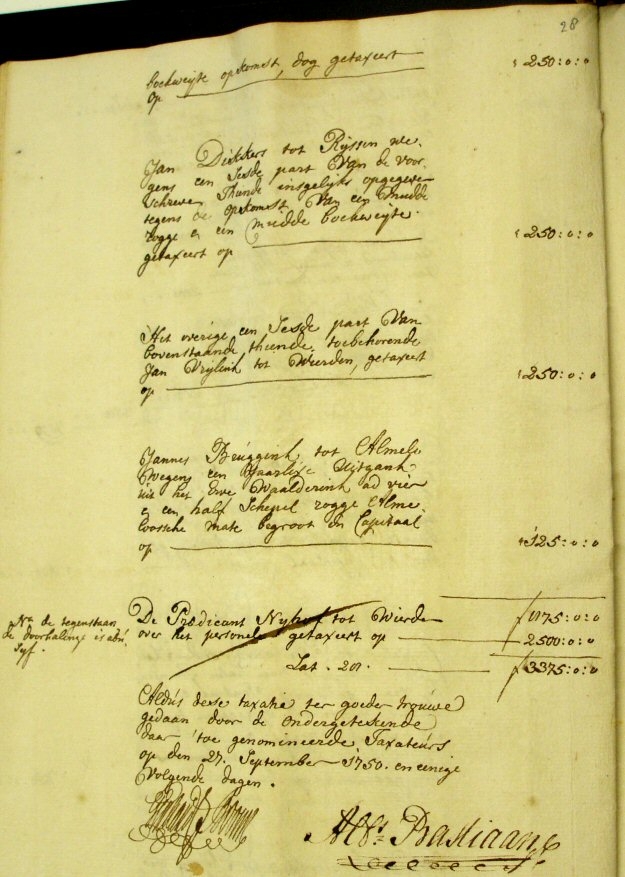 28
boekweyte opkomst, dog getaxeert
op 250:0:0
Jan Dikkers tot Rijssen we-
gens een Sesde part Van de voor-
schreven thiende insgelijks opgegeve
tegens de opkomst Van een Mudde
rogge en een mudde boekweyte
getaxeert op 250:0:0
Het overige een Sesde part Van
bovenstaande thiende, toebehorende
Jan Vrijlink tot Wierden, getaxeert
op 250:0:0
Jannes Bruggink tot Almelo
Wegens een Jaarlixe Uitgank
uit het Erve Waalderink ad vier
e een half Schepel rogge Alme-
loossche mate begroot in Capitaal
op 125:0:0
Na. de tegenstaan
de doorhalinge is
De Prædicant Nyhof tot Wierde
over het personele getaxeert op
ƒ 1175:0:0
2500:0:0
Lat. 201. ƒ 3375:0:0
Aldús dese taxatie ter goeder trouwe
gedaan door de ondergeteikende
daar toe genomineerde Taxateúrs
op den 27. September 1750. en einige
Volgende dagen.
Bastiaan